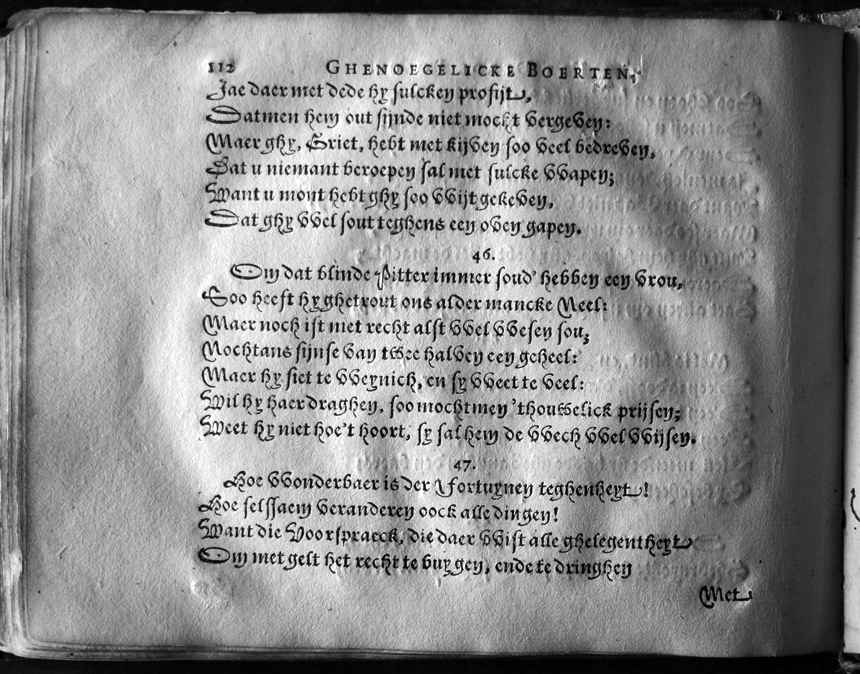 112 GHENOEGELICKE BOERTEN,
Jae daer met dede hy sulcken profijt,
Datmen hem out sijnde niet mocht vergeven:
Maer ghy, Griet, hebt met kijven soo veel bedreven,
Dat u niemant beroepen sal met sulcke vvapen;
Want u mont hebt ghy soo vvijt gekeven,
Dat ghy vvel sout teghens een oven gapen.
46.
Om dat blinde Pitter immer soud' hebben een vrou,
Soo heeft hy ghetrout ons alder mancke Neel:
Maer noch ist met recht alst vvel vvesen sou,
Nochtans sijnse van twee halven een geheel:
Maer hy siet te vveynich, en sy vveet te veel:
Wil hy haer draghen, soo mochtmen 'thousselick prijsen;
Weet hy niet hoe't hoort, sy sal hem de vvech vvel vvijsen.
47.
Hoe vvonderbaer is der Fortuynen teghenheyt!
Hoe selssaem veranderen oock alle dingen!
Want die Voorspraeck, die daer vvist alle ghelegentheyt
Om met gelt het recht te buygen, ende te dringhen
Met